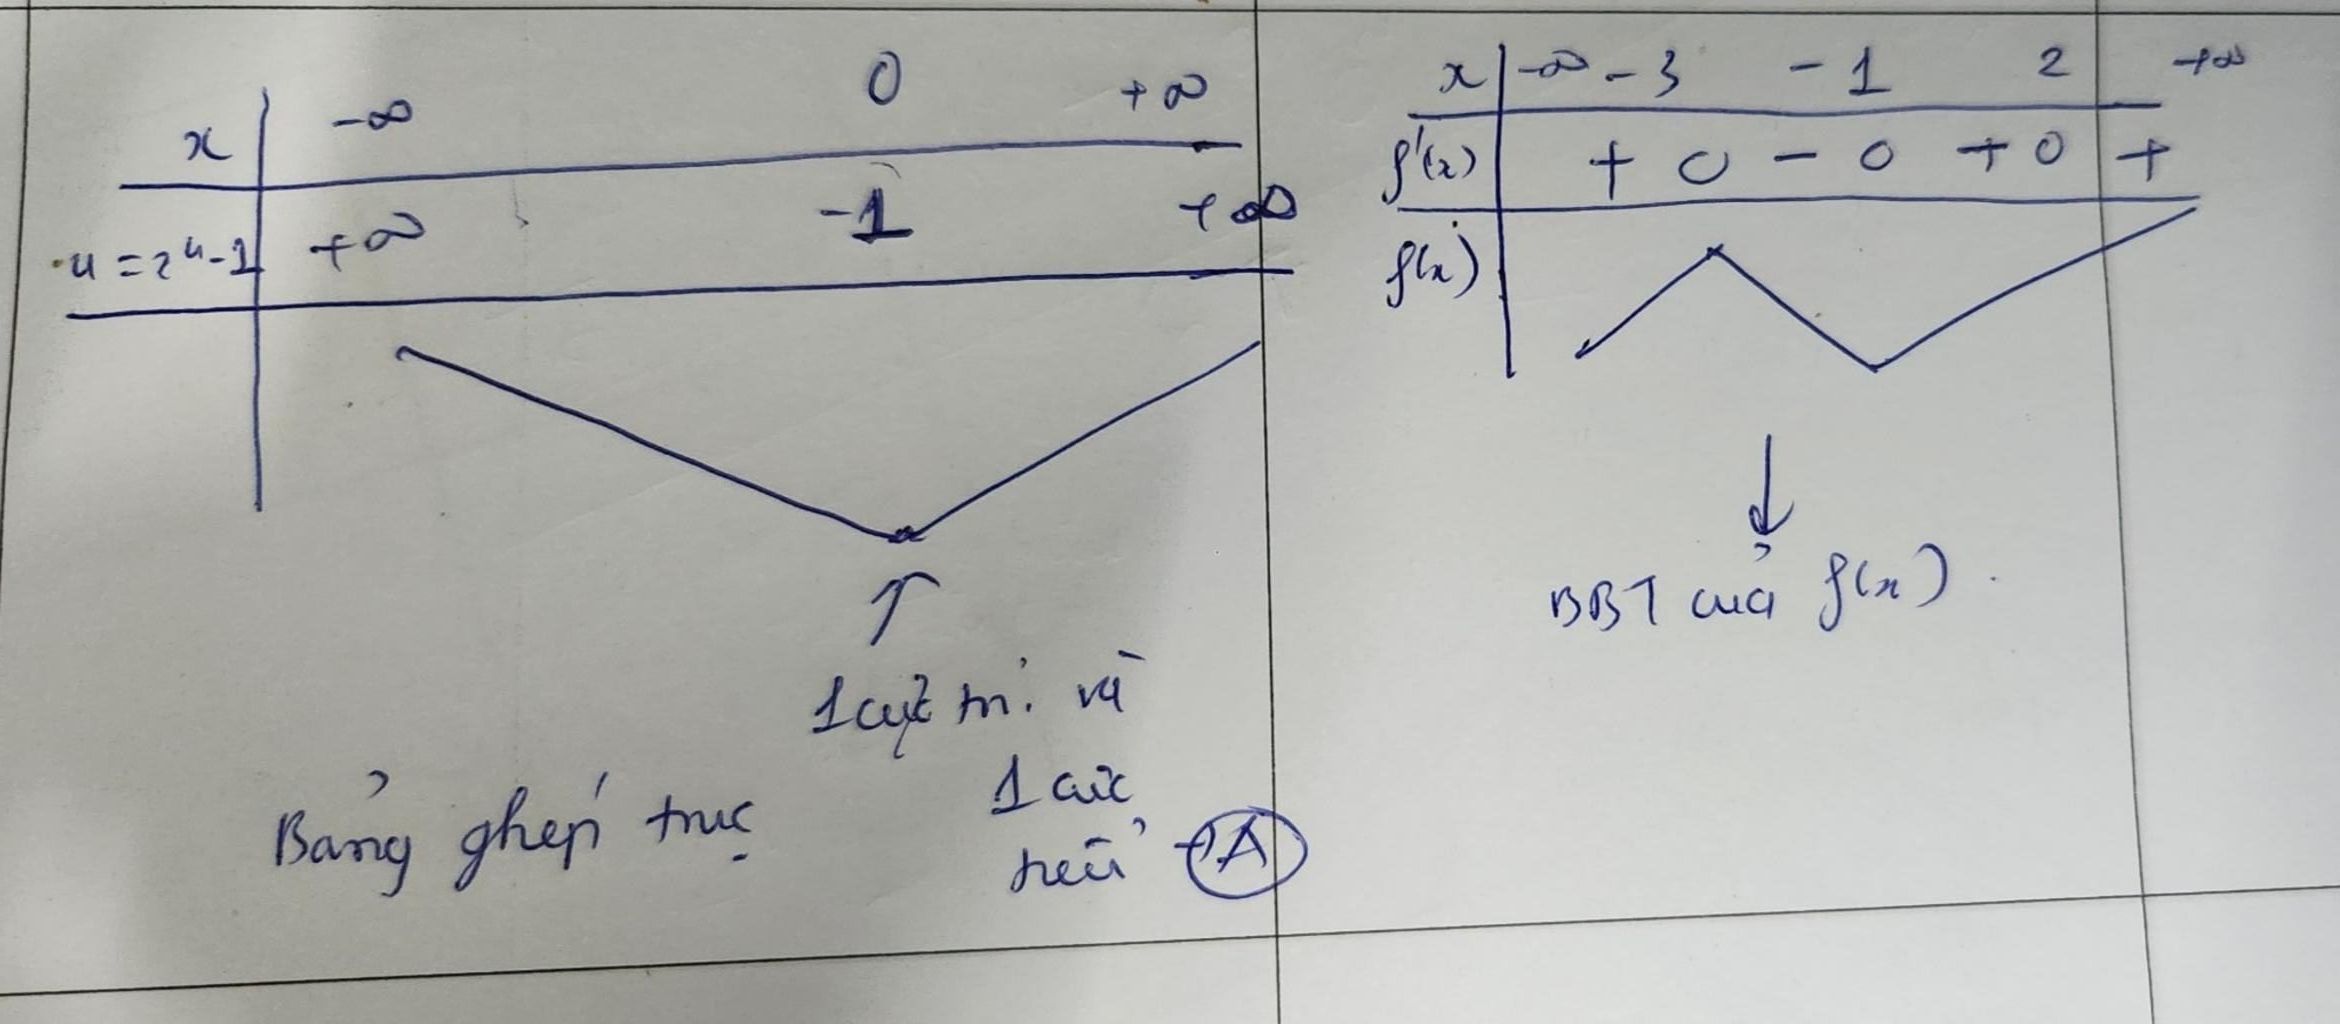 x -∞ 0 +∞
u = x⁴-1 +∞ -1 +∞
1 cực trị và
1 cực
tiểu → A
Bảng ghép trục
x -∞ -3 -1 2 +∞
f'(x) + 0 - 0 + 0 +
f(x)
BBT của f(x).